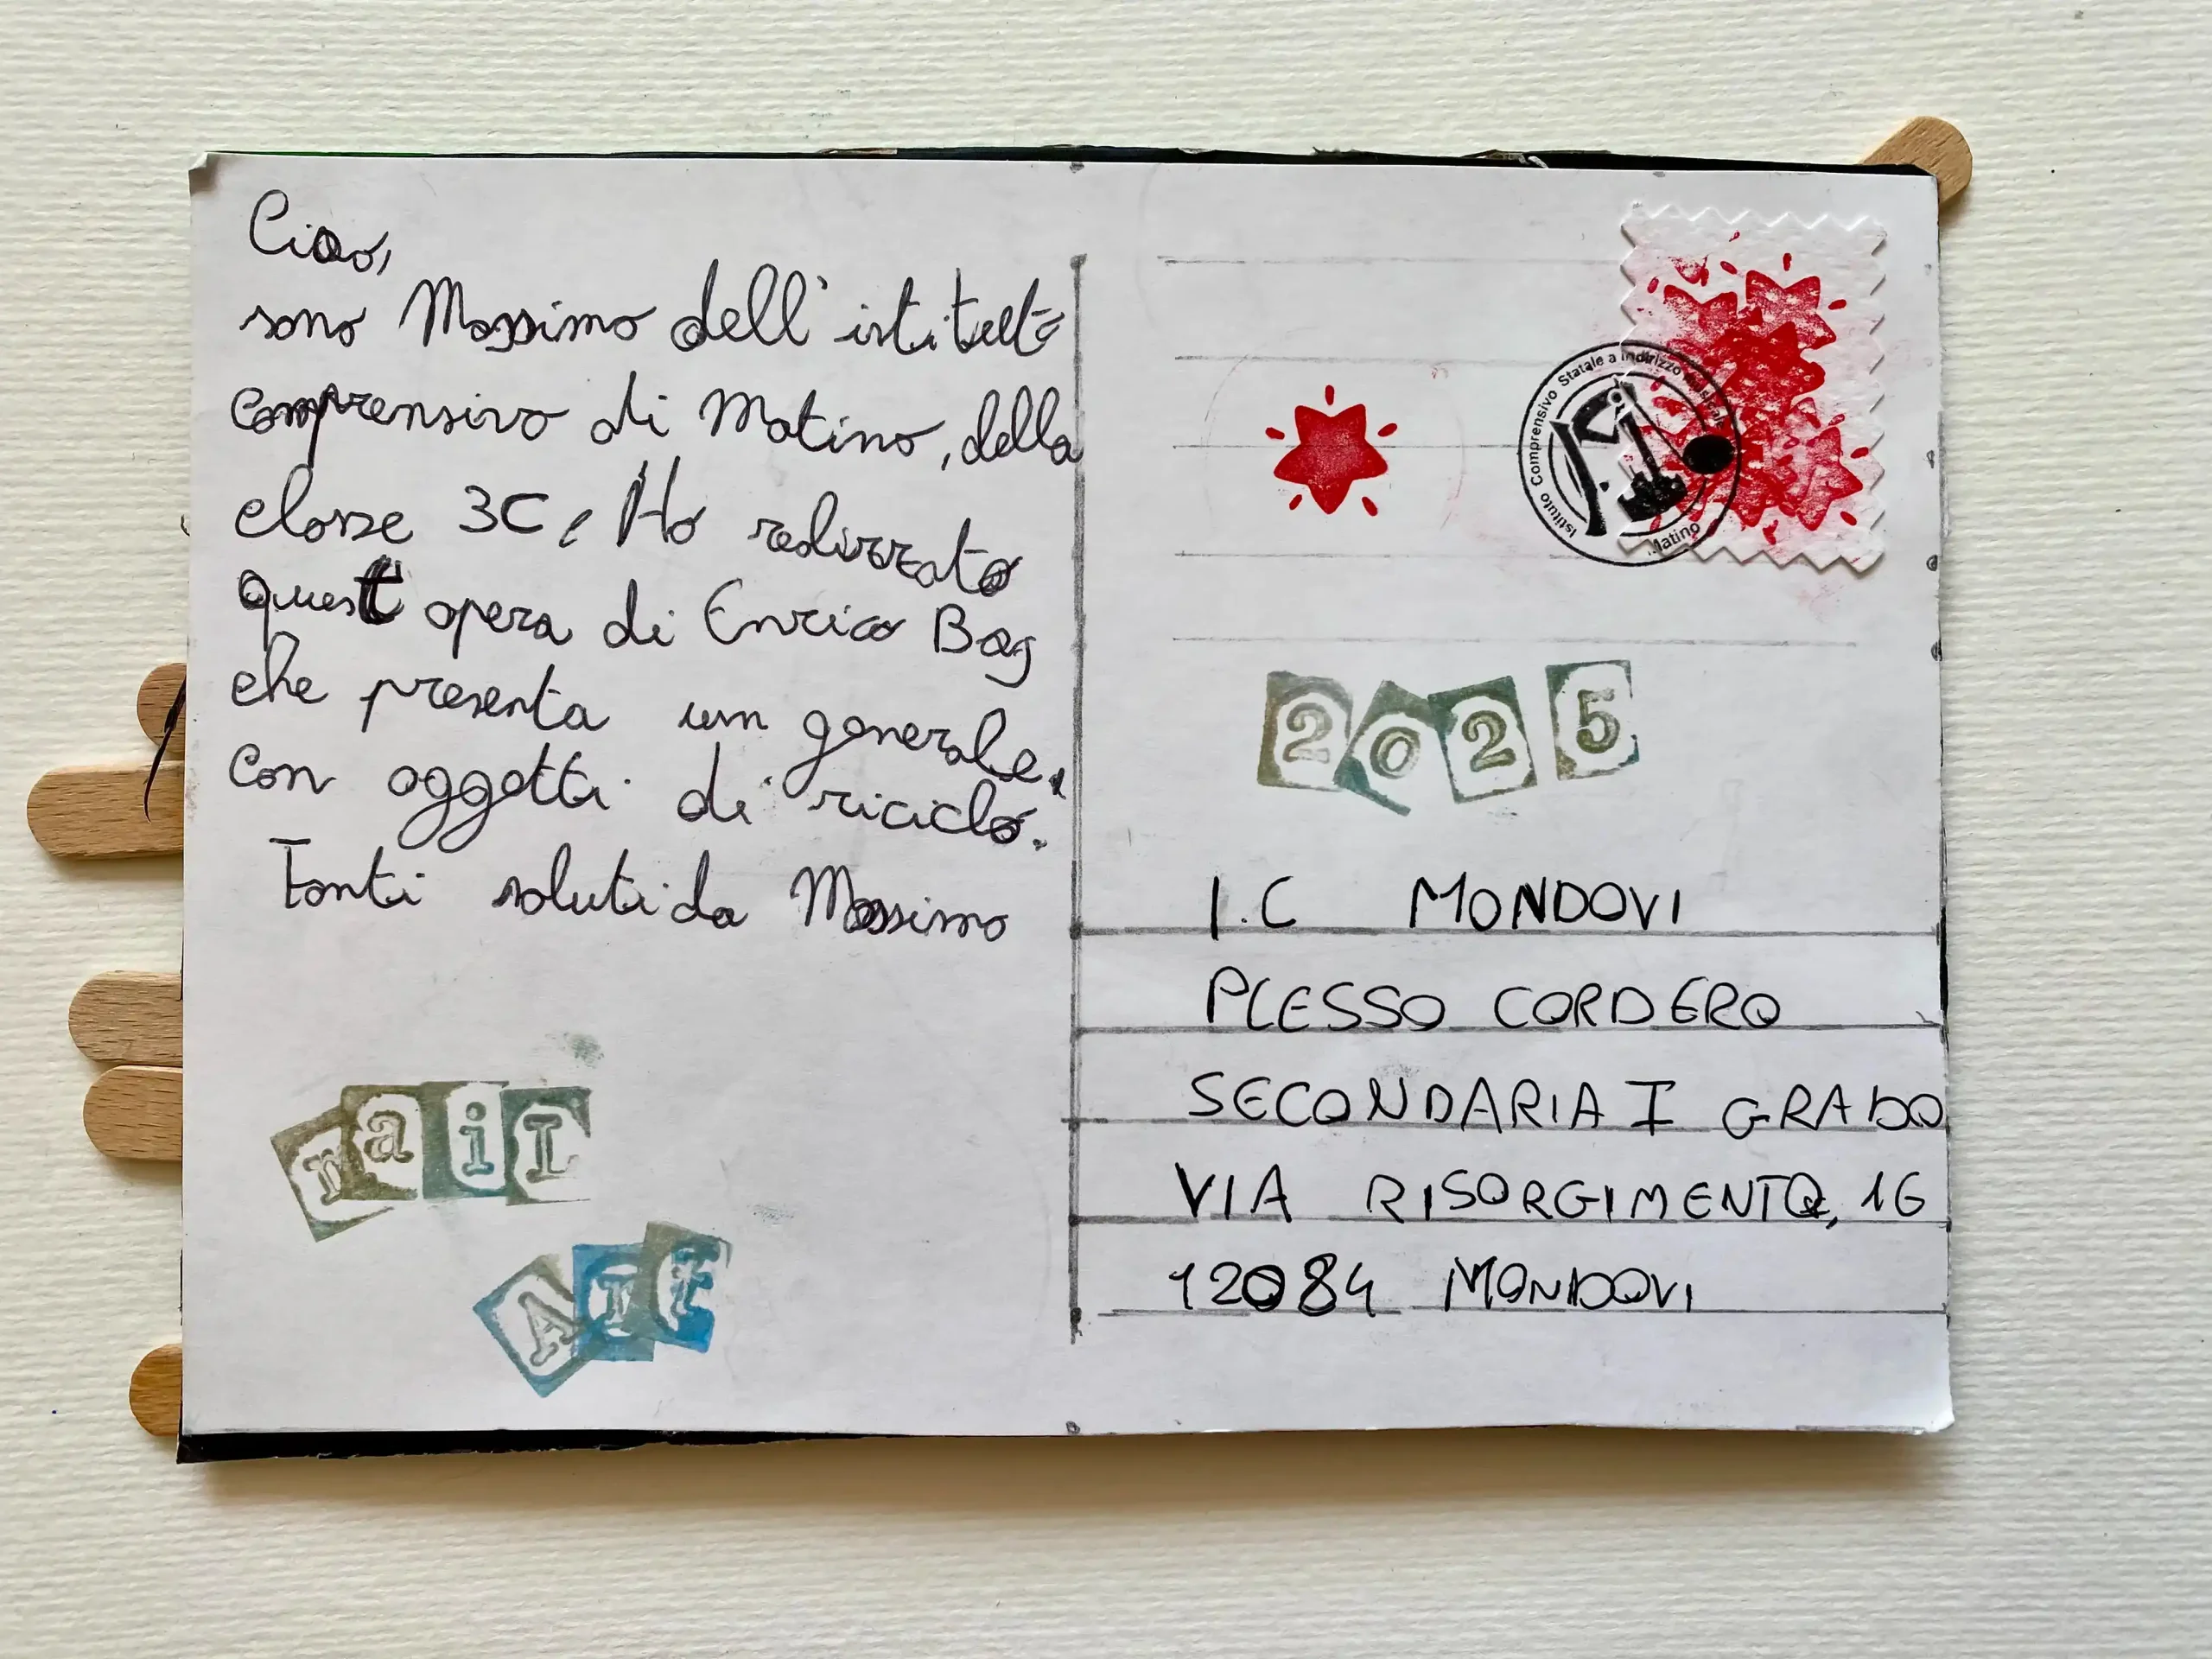 Ciao,
sono Massimo dell'istituto
comprensivo di Matino, della
classe 3C, Ho realizzato
quest opera di Enrico Baj
che presenta un generale,
con oggetti di riciclo.
Tanti saluti da Massimo
mail
Art
Istituto Comprensivo Statale a Indirizzo Musicale
Matino
2025
I.C MONDOVI
PLESSO CORDERO
SECONDARIA I GRADO
VIA RISORGIMENTO, 16
12084 MONDOVI